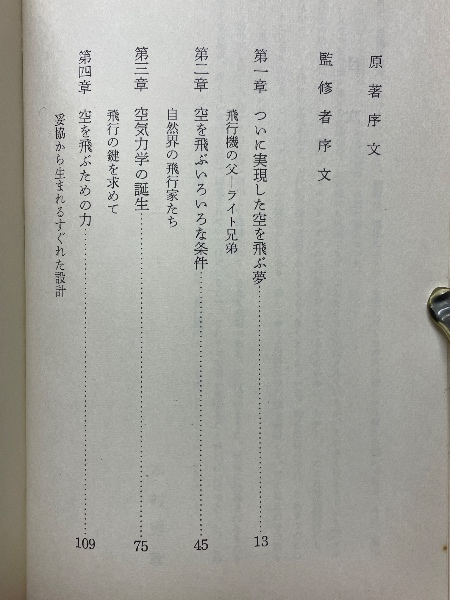 原著序文
監修者序文
第一章 ついに実現した空を飛ぶ夢……………………13
飛行機の父―ライト兄弟
第二章 空を飛ぶいろいろな条件……………………45
自然界の飛行家たち
第三章 空気力学の誕生……………………75
飛行の鍵を求めて
第四章 空を飛ぶための力……………………109
妥協から生まれるすぐれた設計